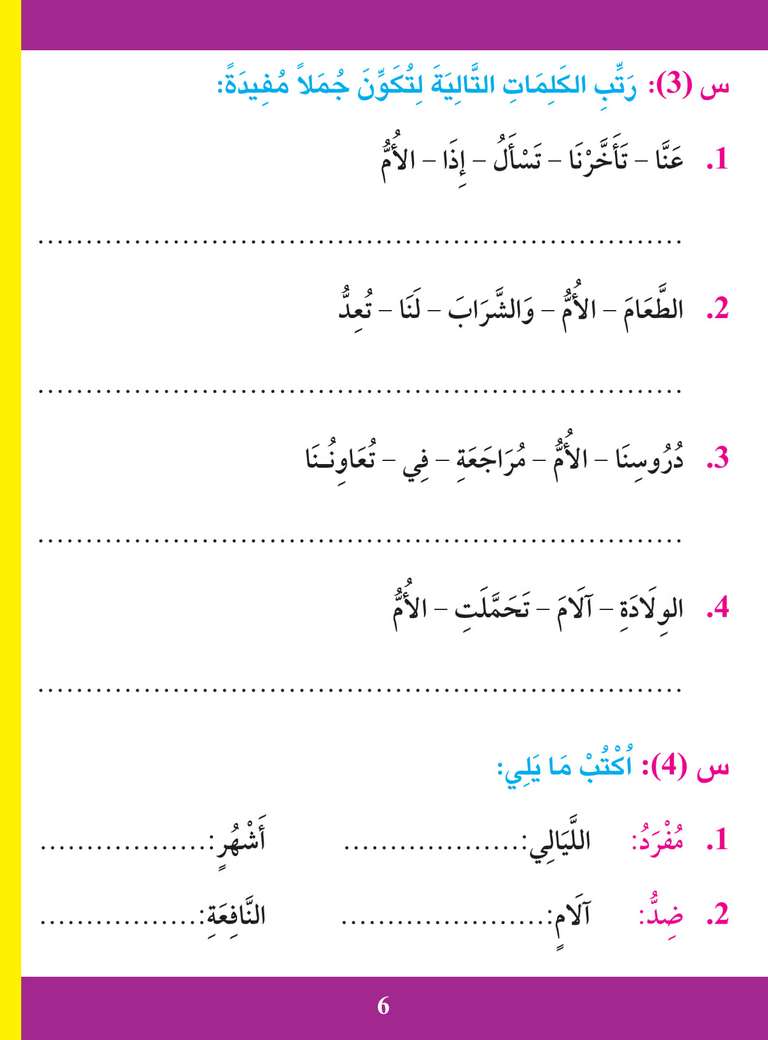 س (3): رَتِّبِ الكَلِمَاتِ التَّالِيَةَ لِتُكَوِّنَ جُمَلاً مُفِيدَةً:
1. عَنَّا – تَأَخَّرْنَا – تَسْأَلُ – إِذَا – الأُمُّ
....................................................................
2. الطَّعَامَ – الأُمُّ – وَالشَّرَابَ – لَنَا – تُعِدُّ
....................................................................
3. دُرُوسِنَا – الأُمُّ – مُرَاجَعَةِ – فِي – تُعَاوِنُـنَا
....................................................................
4. الوِلَادَةِ – آلَامَ – تَحَمَّلَتِ – الأُمُّ
....................................................................
س (4): اُكْتُبْ مَا يَلِي:
1. مُفْرَدُ: اللَّيَالِي:................... أَشْهُرٍ:..................
2. ضِدُّ: آلَامٍ:...................... النَّافِعَةِ:.................
6